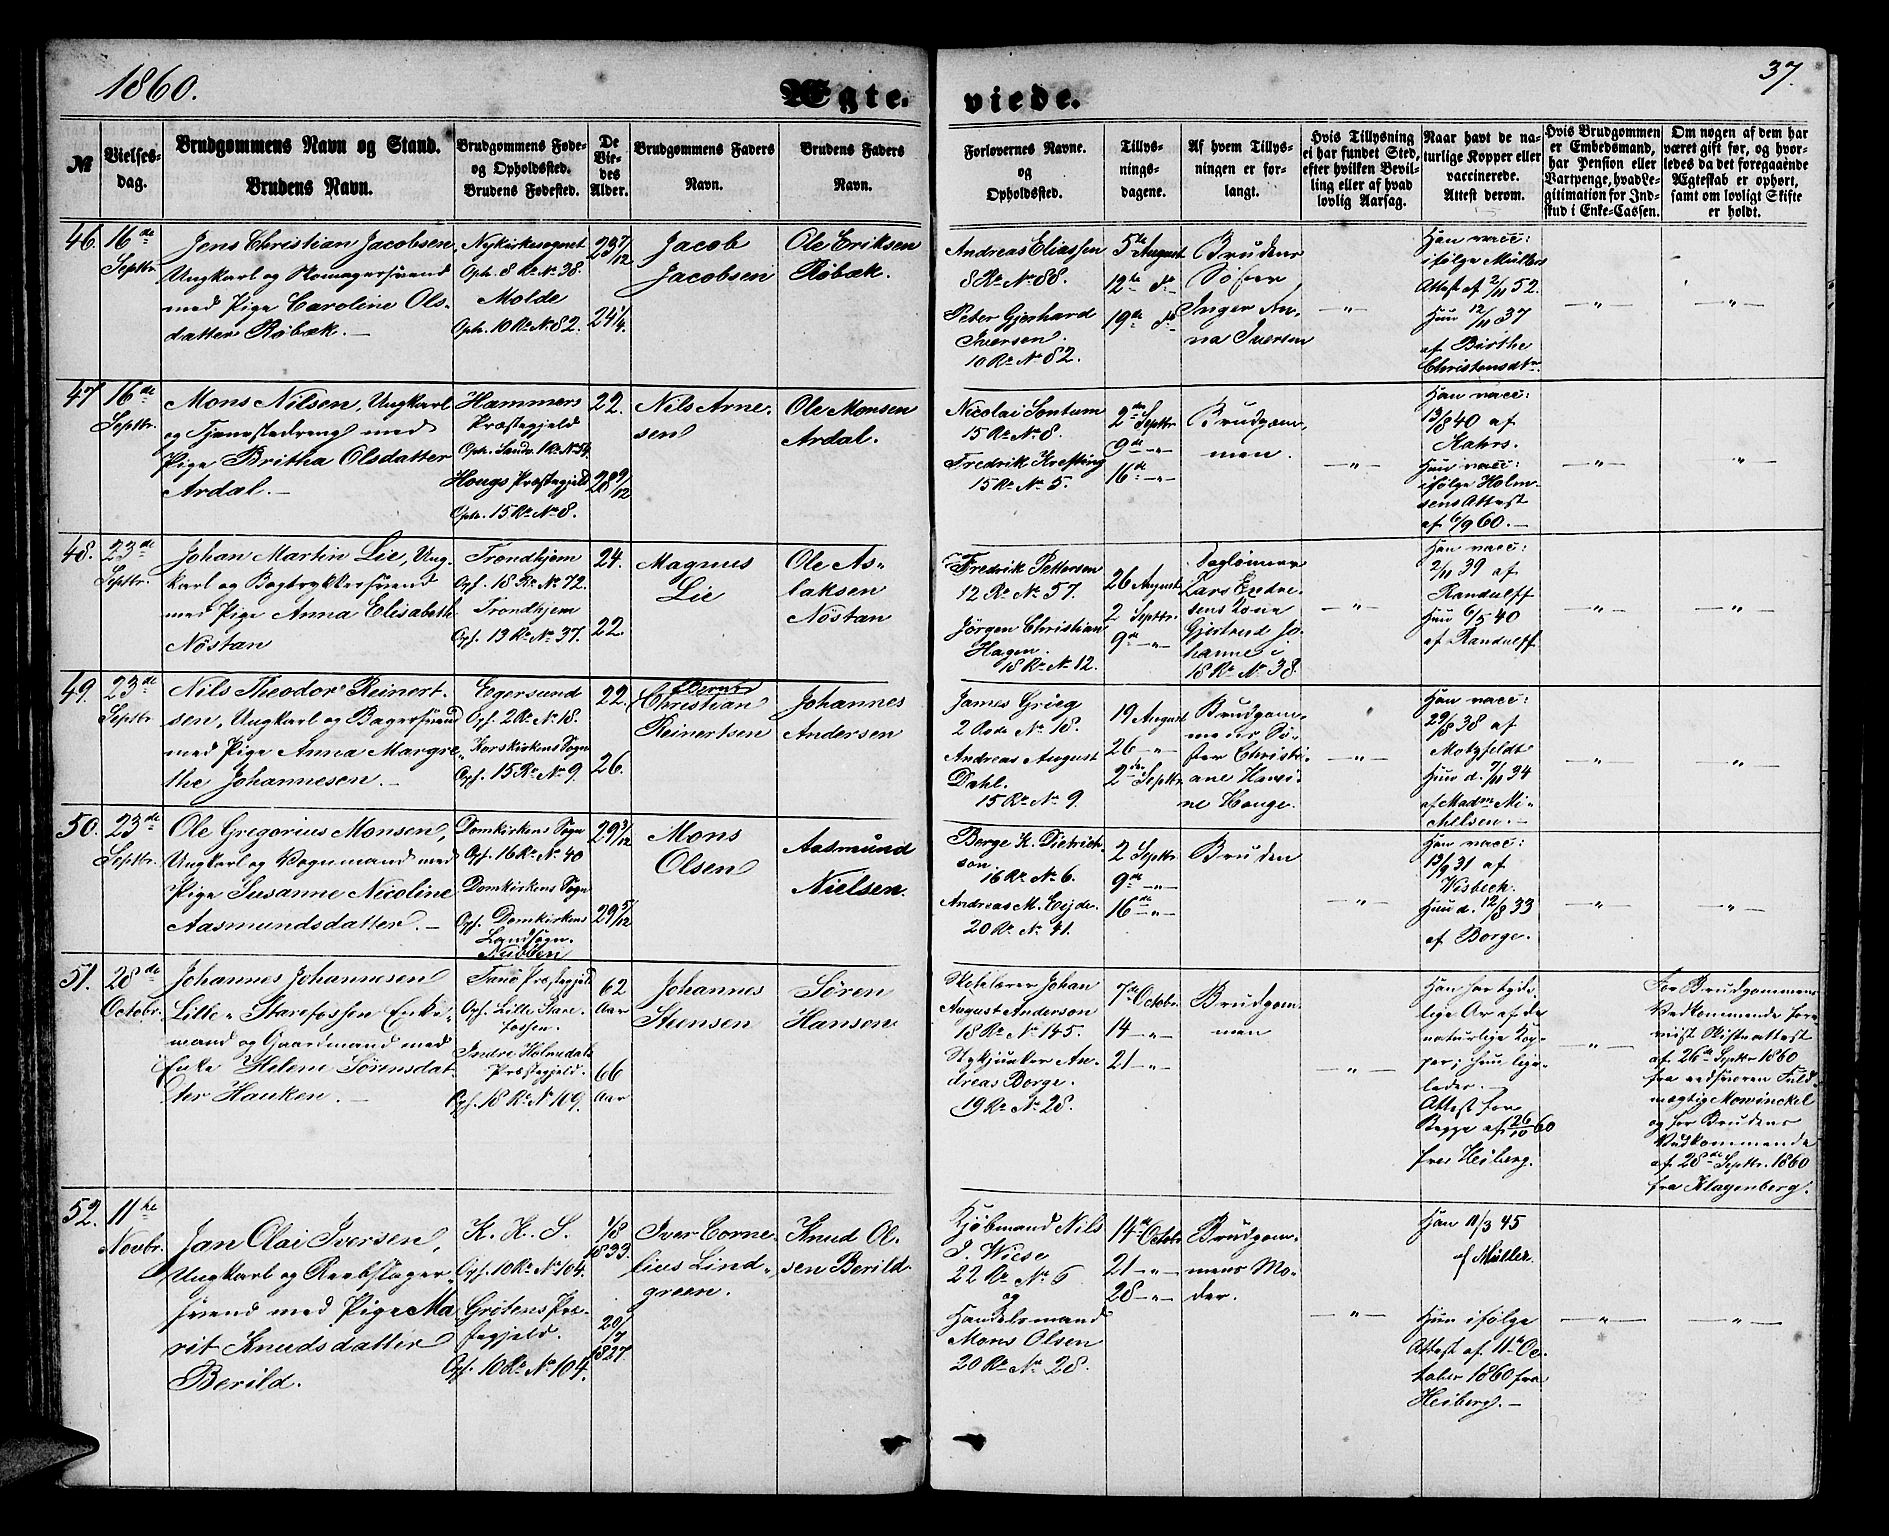 1860.
Ægte-
viede.
37.
№
Vielses-
dag.
Brudgommens Navn og Stand.
Brudens Navn.
Brudgommens Føde-
og Opholdssted.
Brudens Fødested.
De
Vie-
des
Alder.
Brudgommens Faders
Navn.
Brudens Faders
Navn.
Forlovernes Navne.
og
Opholdssted.
Tillys-
nings-
dagene.
Af hvem Tillys-
ningen er for-
langt.
Hvis Tillysning
ei har fundet Sted,
efter hvilken Bevil-
ling eller af hvad
lovlig Aarsag.
Naar havt de na-
turlige Kopper eller
vaccinerede.
Attest derom.
Hvis Brudgommen
er Embedsmand,
har Pension eller
Vartpenge, hvad Le-
gitimation for Ind-
skud i Enke-Cassen.
Om nogen af dem har
været gift før, og hvor-
ledes da det foregaaende
Ægteskab er ophørt,
samt om lovligt Skifte
er holdt.
46.
16de
Septbr.
Jens Christian Jacobsen
Ungkarl og
med Pige Caroline Ols-
datter Røbæk. —
Nykirkesognet
Oph. 8 Rd. No 38.
Molde
Oph. 10 Rd. No 82.
23 7/12
24 1/4.
Jacob
Jacobsen
Ole Eriksen
Røbæk.
Andreas Eliassen
8 Rd. No 88.
Peter Gjerhard
Iversen.
10 Rd. No 82.
5te August
12te do
19de do
Brudens
Søster
Inger An-
na Iversen
— „ —
Han vacc:
ifølge Müllers
Attest af 2/11 52.
Hun 12/11 37
af Birthe
Christensdtr.
— „ —
— „ —
47
16de
Septbr.
Mons Nilsen, Ungkarl
og Tjenestedreng med
Pige Britha Olsdatter
Ardal. —
Hammers
Præstegjeld
Oph. Sandv. 1 Rd. No 54.
Hougs Præstegjeld
Oph. 15 Rd. No 8.
22.
28 9/12
Nils Arne-
sen
Ole Monsen
Ardal.
Nicolai Sontum
15 Rd. No 8.
Fredrik Krefting
15 Rd. No 5.
2den Septbr.
9de — „ —
16de — „ —
Brudgom-
men.
— „ —
Han vacc:
13/8 40 af
Kahrs.
Hun vacc:
ifølge Holm-
sens Attest
af 6/9 60. —
— „ —
— „ —
48.
23de
Septbr.
Johan Martin Lie, Ung-
karl og Bogtrykkersvend
med Pige Anna Elisabeth
Nøstan
Trondhjem
Oph. 18 Rd. No 72.
Trondhjem
Oph. 13 Rd. No 37.
24.
22.
Magnus
Lie
Ole As-
laksen
Nøstan
Fredrik Pettersen
12 Rd. No 57.
Jørgen Christian
Hagen.
18 Rd. No 12.
26 August
2 Septbr.
9de — „ —
Dagløinner
Lars Endre-
sens Kone
Gjertrud Jo-
hanne i
18 Rd. No 38.
— „ —
Han vacc:
2/11 39 af
Randulff
Hun 6/5 40
af Randulff.
— „ —
— „ —
49.
23de
Septbr.
Nils Theodor Reinert-
sen, Ungkarl og Bagersvend
med Pige Anna Margre-
the Johannesen. —
Egersund
Oph. 2 Rd. No 18.
Korskirkens Sogn
Oph. 15 Rd. No 9.
22.
26.
Christian
Reinertsen
Johannes
Andersen
James Grieg
2 Rode No 18.
Andreas August
Dahl.
15 Rd. No 9.
19 August
26 — „ —
2den Septbr.
Brudgom-
mens Sø-
ster Christi-
ane Hansi-
ne Houge.
— „ —
Han vacc:
29/8 38 af
Motzfeldt
Hun d. 7/11 34
af Madm Mi-
chelsen. —
— „ —
— „ —
50.
23de
Septbr.
Ole Gregorius Monsen,
Ungkarl og Vognmand med
Pige Susanne Nicoline
Aasmundsdatter. —
Domkirkens Sogn
Oph. 16 Rd. No 40
Domkirkens Sogn
Oph. Domkirkens
Landsogn.
Nubben
29 3/12
29 5/12
Mons
Olsen
Aasmund
Nielsen.
Berge K. Dietrich-
son.
16 Rd. No 6.
Andreas M. Eide.
20 Rd. No 41.
2 Septbr.
9de — „ —
16de — „ —
Bruden
— „ —
Han vacc:
13/9 31 af
Wisbech.
Hun d. 12/8 33
af Borge.
— „ —
— „ —
51.
28de
Octobr.
Johannes Johannesen
Lille-Starefossen Enke-
mand og Gaardmand med
Enke Helene Sørensdat-
ter Hauken. —
Fanø Præstegjeld
Oph. Lille Stare-
fossen.
Indre Holmedals
Præstegjeld.
Oph. 18 Rd. No 109.
62
Aar
66
Aar
Johannes
Steensen
Søren
Hansen
Johan
August Anderson
18 Rd. No 145.
Stykjunker An-
dreas Borge.
19 Rd. No 28.
7de Octobr.
14 — „ —
21 — „ —
Brudgom-
men
— „ —
Han har tyde-
lige Ar af de
naturlige Kop-
per; hun lige-
ledes. —
Attest for
Begge af 26/10 60
fra Heiberg.
— „ —
For Brudgommens
Vedkommende frem-
vist Skifteattest
af 26de Septbr 1860
fra edsvoren Fuld-
mægtig Mowinckel
og for Brudens
Vedkommende
af 28de Septbr. 1860
fra Klagenberg.
52.
11te
Novbr.
Jan Olai Iversen,
Ungkarl og Reebslager-
svend med Pige Ma-
rit Knudsdatter
Berild.
K. K. S.
Oph. 10 Rd. No 104.
Grötens Præ-
stegjeld.
Oph. 10 Rd. No 104.
1/8
1833.
20/7
1827.
Iver Corne-
lius Lind-
green.
Knud Ol-
sen Berild.
Kjøbmand Nils
J. Wiese
22 Rd. No 6
og
Handelsmand
Mons Olsen
20 Rd. No 28.
14de Octobr.
21 — „ —
28 — „ —
Brudgom-
mens Mo-
der.
— „ —
Han 11/3 45
af Müller.
Hun ifølge
Attest af 11te Oc-
tober 1860 fra
Heiberg. —
— „ —
— „ —